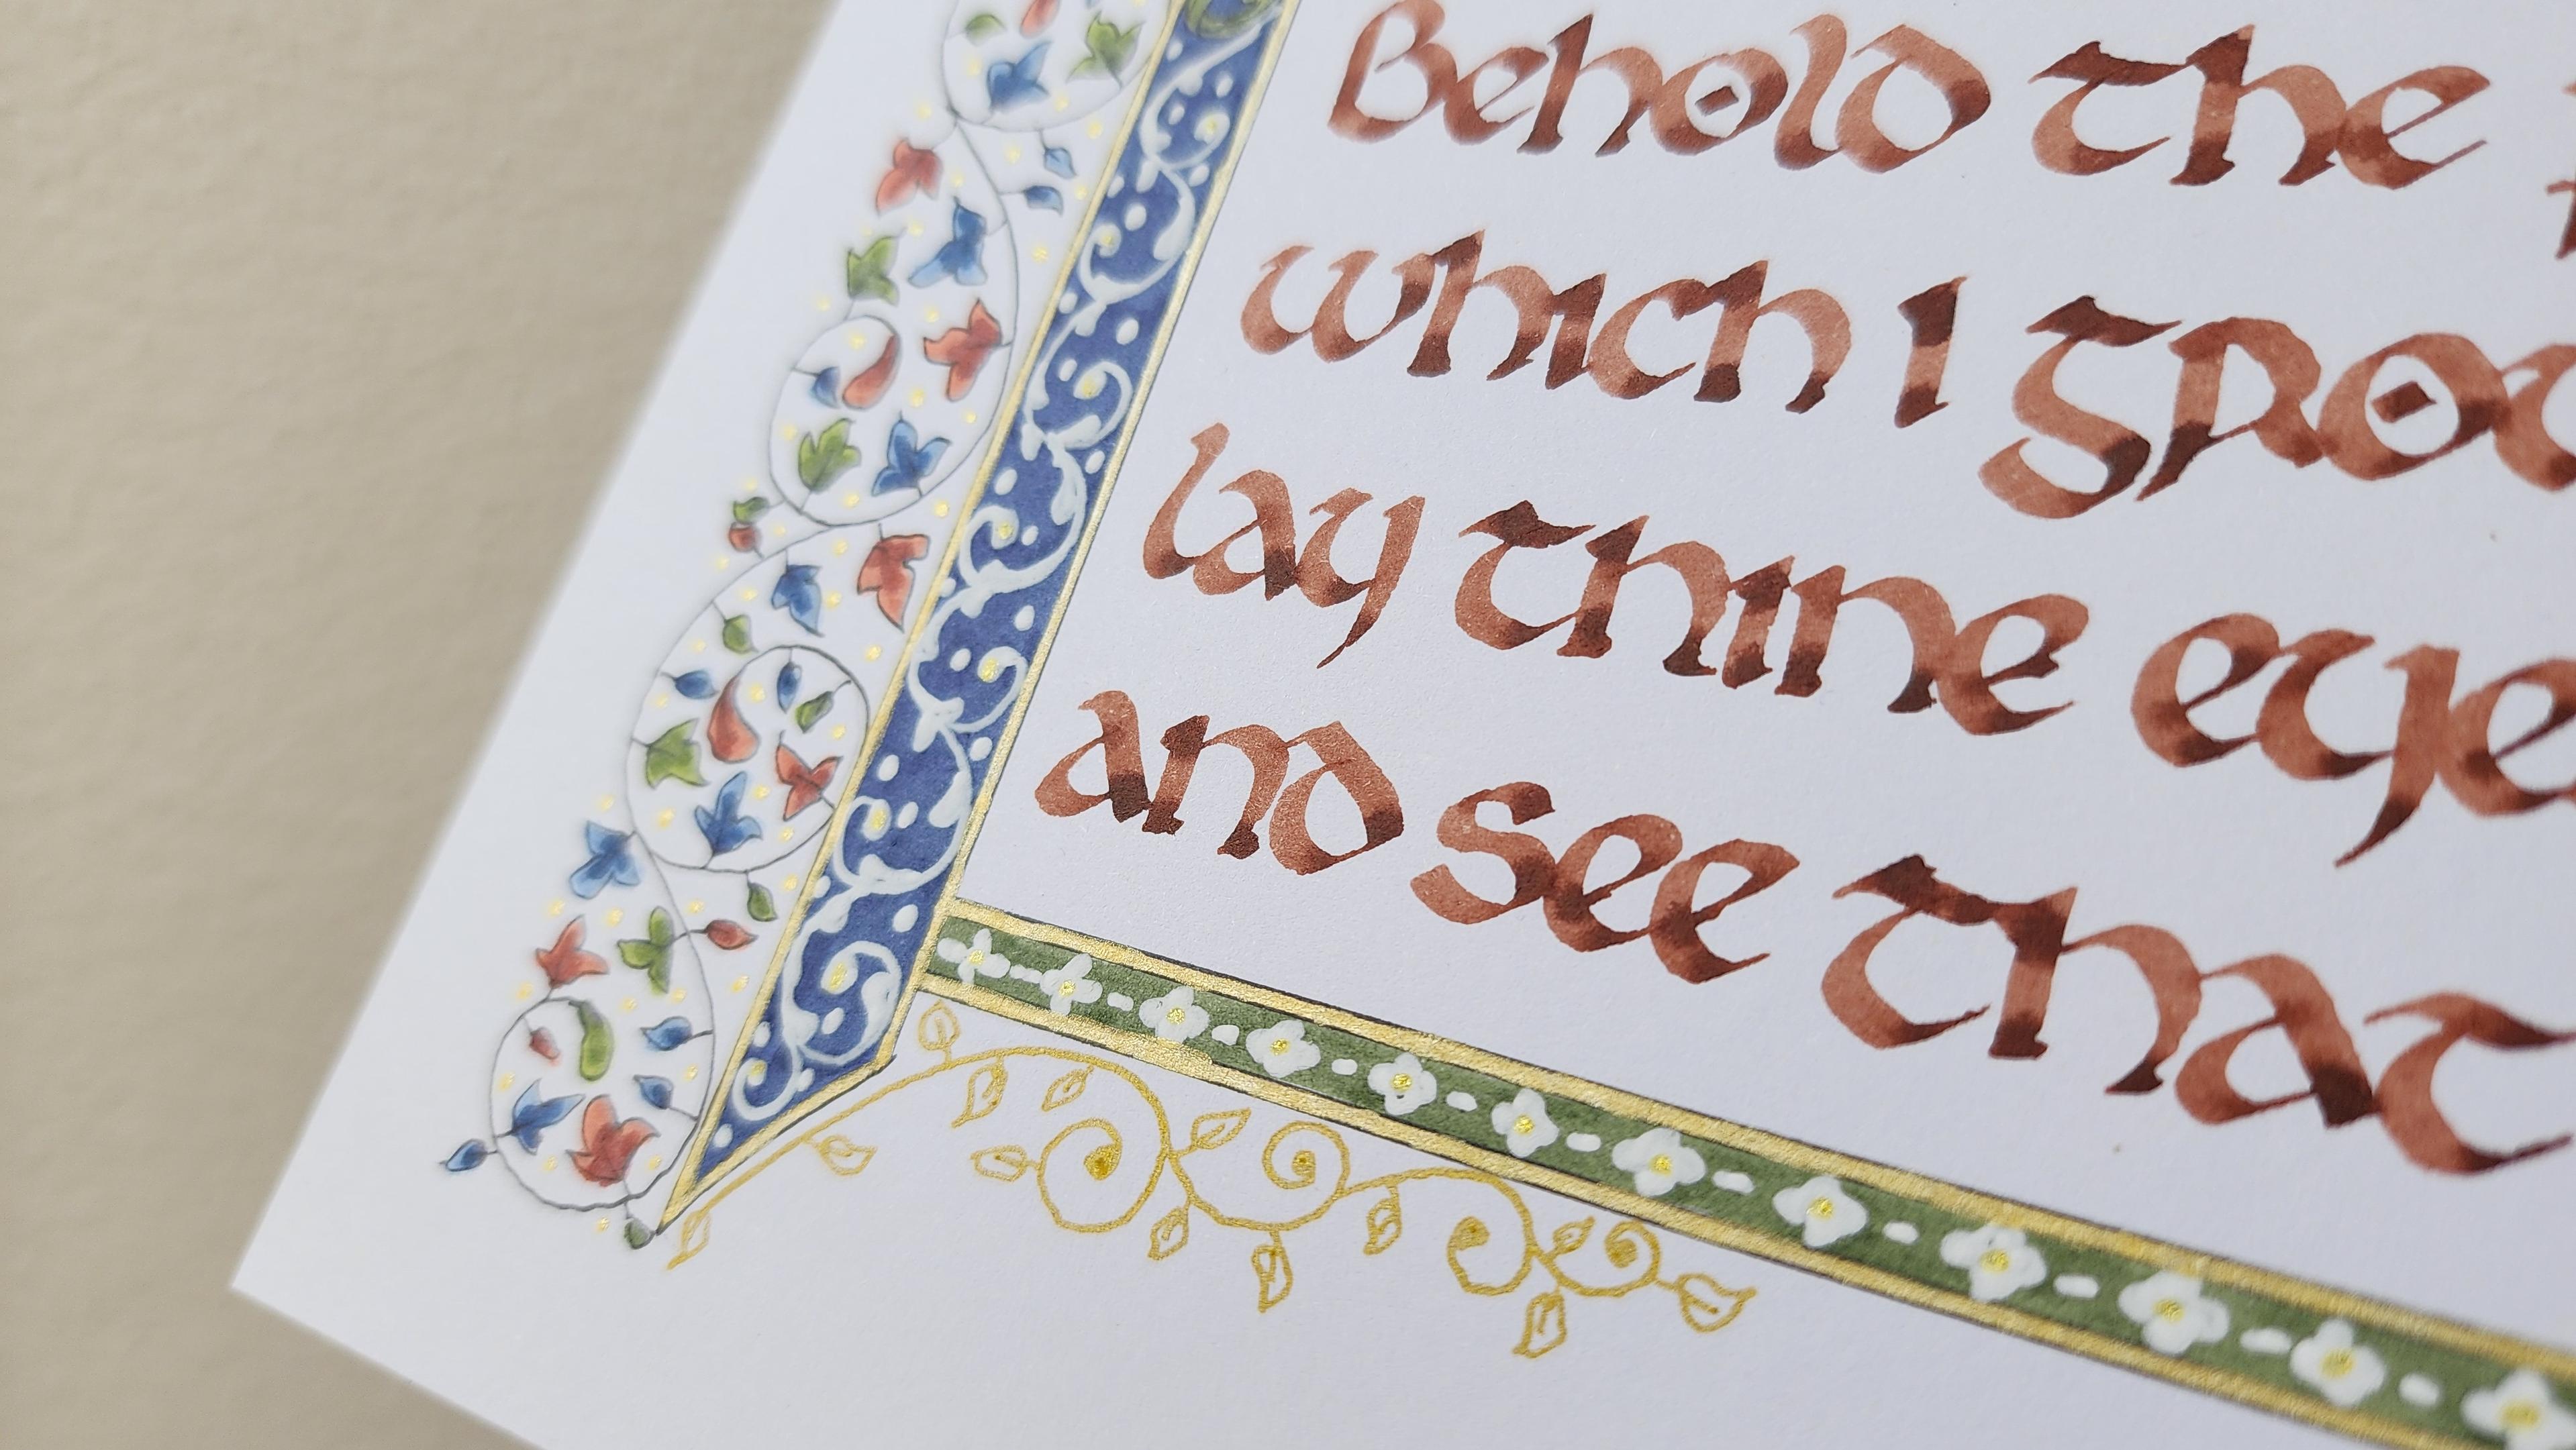 Behold the
which I
lay thine
and see that